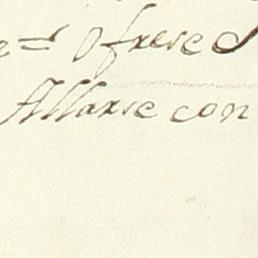 Ofrese
Allarse con